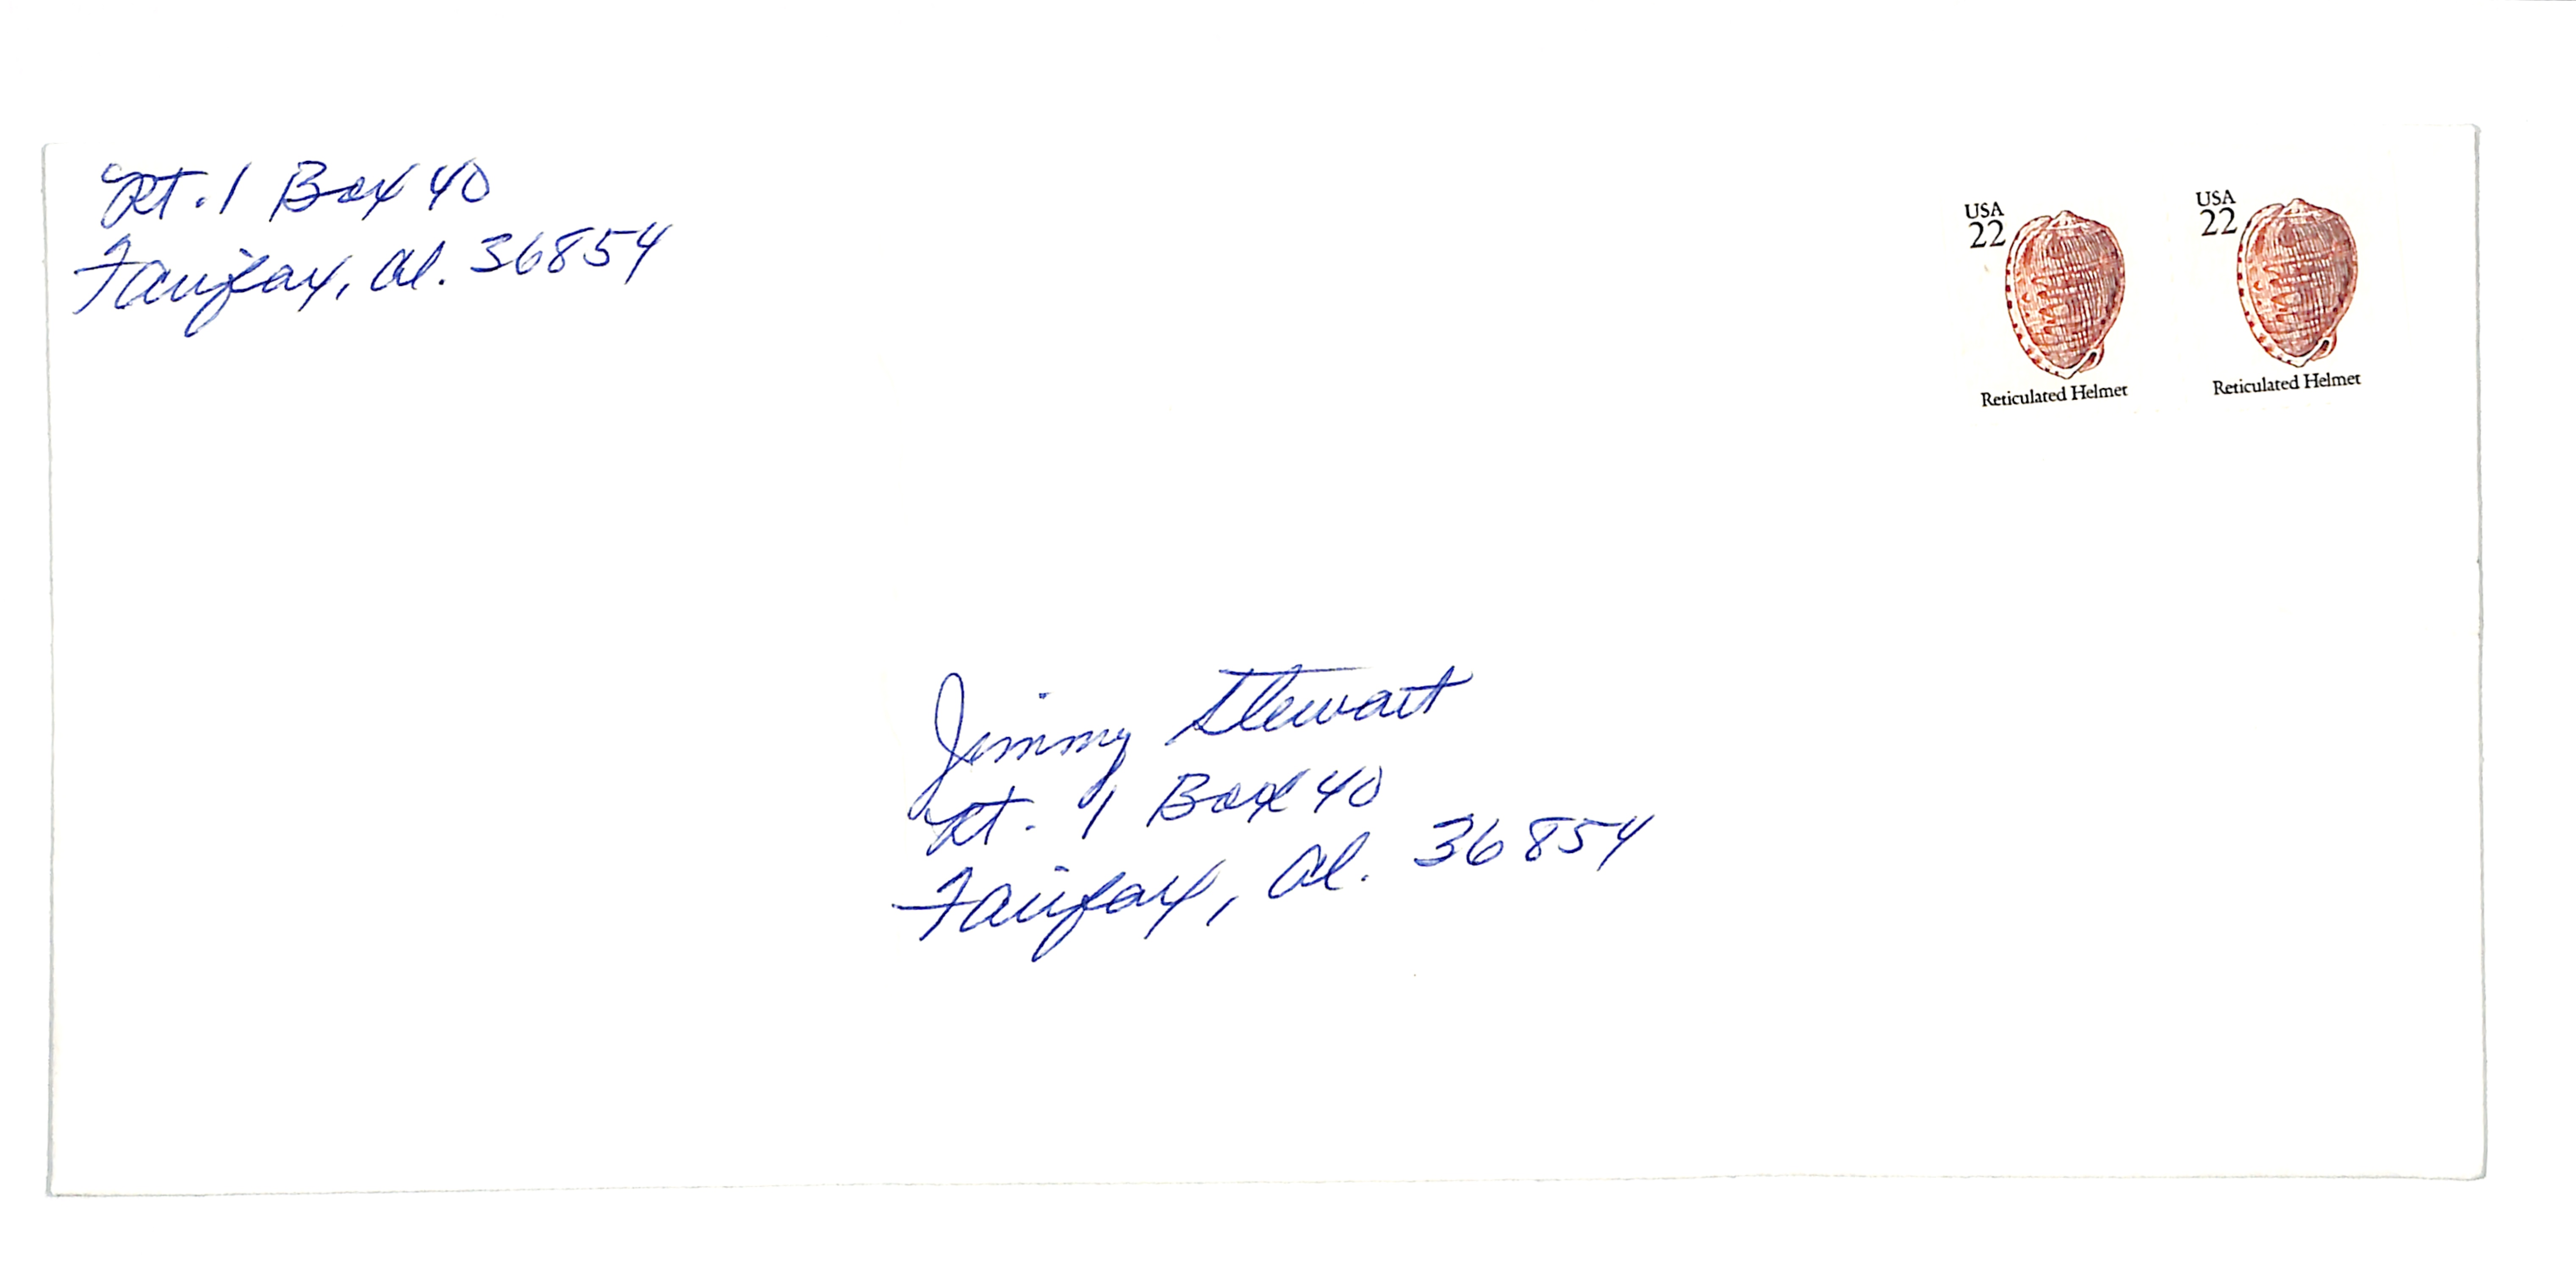 Rt. 1 Box 40
Fairfax, Al. 36854
USA
22
Reticulated Helmet
USA
22
Reticulated Helmet
Jimmy Stewart
Rt. 1 Box 40
Fairfax, Al. 36854